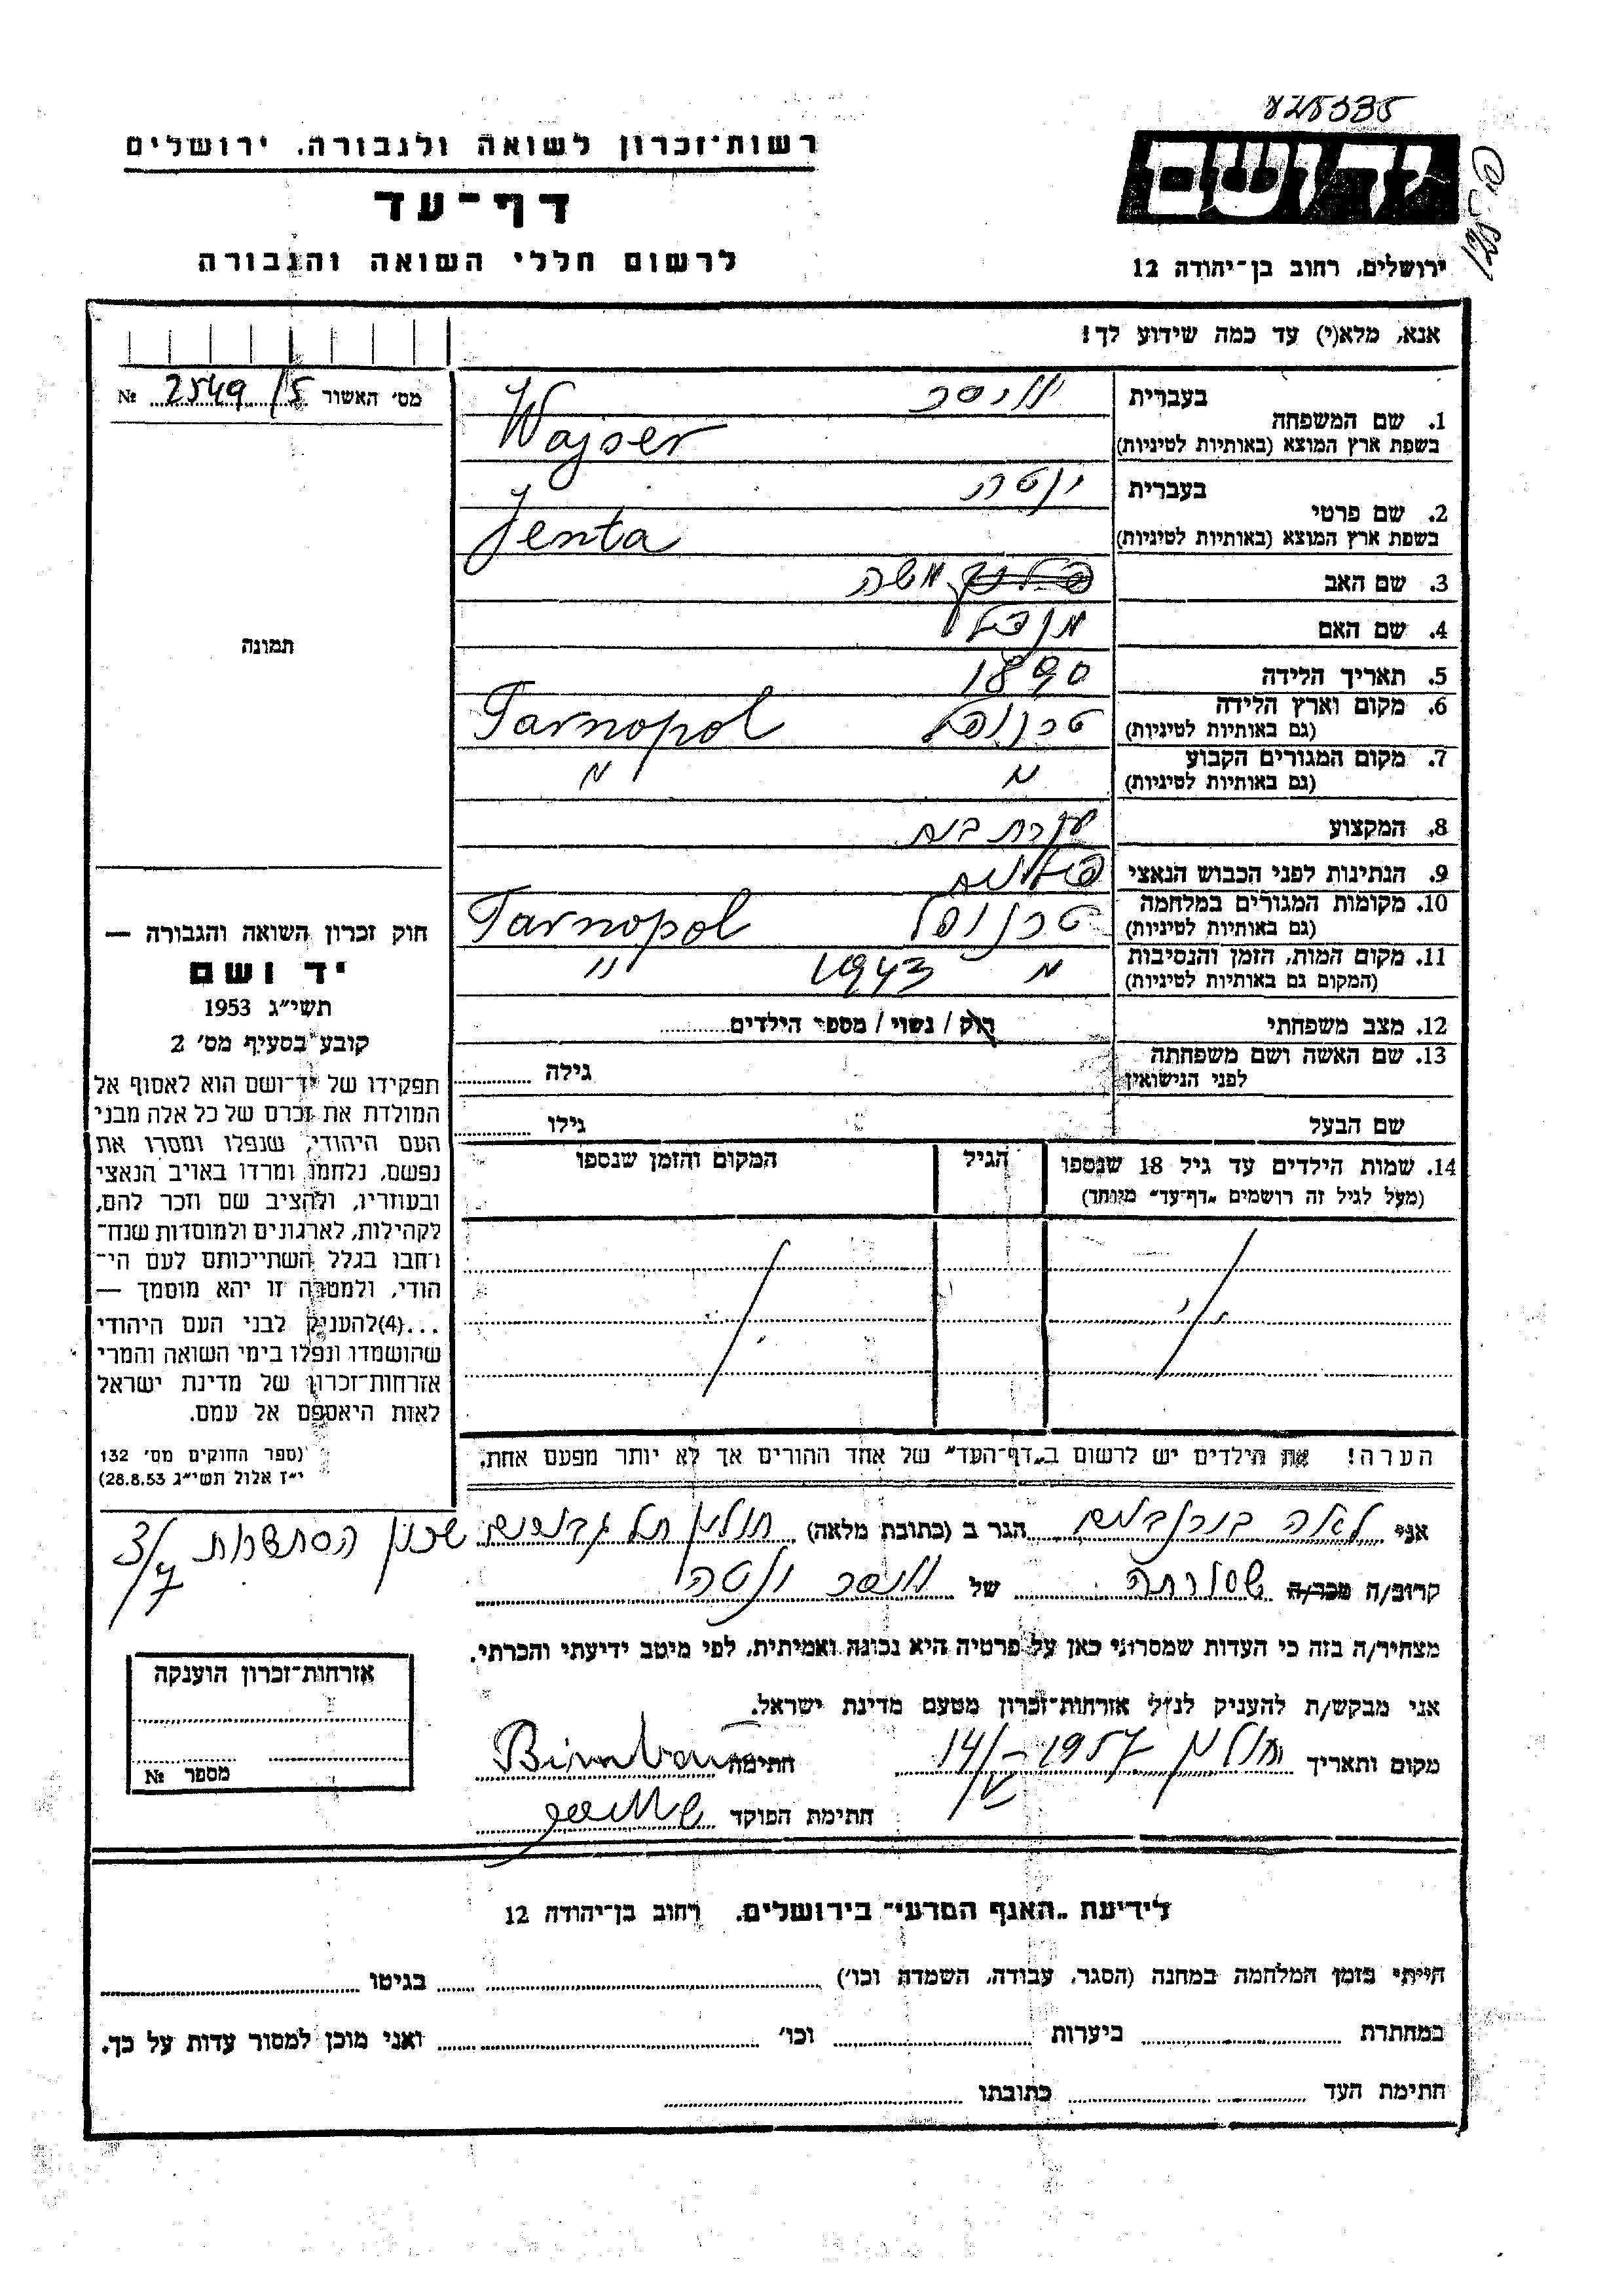 825335
רשות־זכרון לשואה ולגבורה, ירושלים
דף־עד
לרשום חללי השואה והגבורה
יד ושם
ירושלים, רחוב בן־יהודה 12
אנא, מלא(י) עד כמה שידוע לך!
מס׳ האשור 2549/5 №
תמונה
1. שם המשפחה
בעברית וויסר
בשפת ארץ המוצא (באותיות לטיניות) Wajser
2. שם פרטי
בעברית ינטה
בשפת ארץ המוצא (באותיות לטיניות) Jenta
3. שם האב משה
4. שם האם
5. תאריך הלידה 1890
6. מקום וארץ הלידה טרנופל Tarnopol
(גם באותיות לטיניות)
7. מקום המגורים הקבוע
(גם באותיות לטיניות)
8. המקצוע עקרת בית
9. הנתינות לפני הכבוש הנאצי פולנית
10. מקומות המגורים במלחמה טרנופל Tarnopol
(גם באותיות לטיניות)
11. מקום המות, הזמן והנסיבות 1943 "
(המקום גם באותיות לטיניות)
12. מצב משפחתי רוק / נשוי / מספר הילדים
13. שם האשה ושם משפחתה גילה
לפני הנישואין
שם הבעל גילו
14. שמות הילדים עד גיל 18 שנספו הגיל המקום והזמן שנספו
(מעל לגיל זה רושמים „דף־עד" מיוחד)
הערה! את הילדים יש לרשום ב„דף־העד" של אחד ההורים אך לא יותר מפעם אחת.
חוק זכרון השואה והגבורה —
יד ושם
תשי״ג 1953
קובע בסעיף מס׳ 2
תפקידו של יד־ושם הוא לאסוף אל
המולדת את זכרם של כל אלה מבני
העם היהודי, שנפלו ומסרו את
נפשם, נלחמו ומרדו באויב הנאצי
ובעוזריו, ולהציב שם וזכר להם,
לקהילות, לארגונים ולמוסדות שנח־
רחבו בגלל השתייכותם לעם הי־
הודי, ולמטרה זו יהא מוסמך —
...(4)להעניק לבני העם היהודי
שהושמדו ונפלו בימי השואה והמרי
אזרחות־זכרון של מדינת ישראל
לאות היאספם אל עמם.
(ספר החוקים מס׳ 132
י״ז אלול תשי״ג 28.8.53)
אני לאה בירנבוים הגר ב (כתובת מלאה) חולון תל גבורים שכון הסתדרות 3/7
קרוב/ה מכר/ה של וויסר ינטה
מצהיר/ה בזה כי העדות שמסרתי כאן על פרטיה היא נכונה ואמיתית, לפי מיטב ידיעתי והכרתי.
אני מבקש/ת להעניק לנ״ל אזרחות־זכרון מטעם מדינת ישראל.
מקום ותאריך חולון 1957 חתימה Birnbaum
חתימת הפוקד
אזרחות־זכרון הוענקה
מספר №
לידיעת „האגף המדעי" בירושלים, רחוב בן־יהודה 12
הייתי בזמן המלחמה במחנה (הסגר, עבודה, השמדה וכו׳) בגיטו
במחתרת ביערות וכו׳ ואני מוכן למסור עדות על כך.
חתימת העד כתובתו